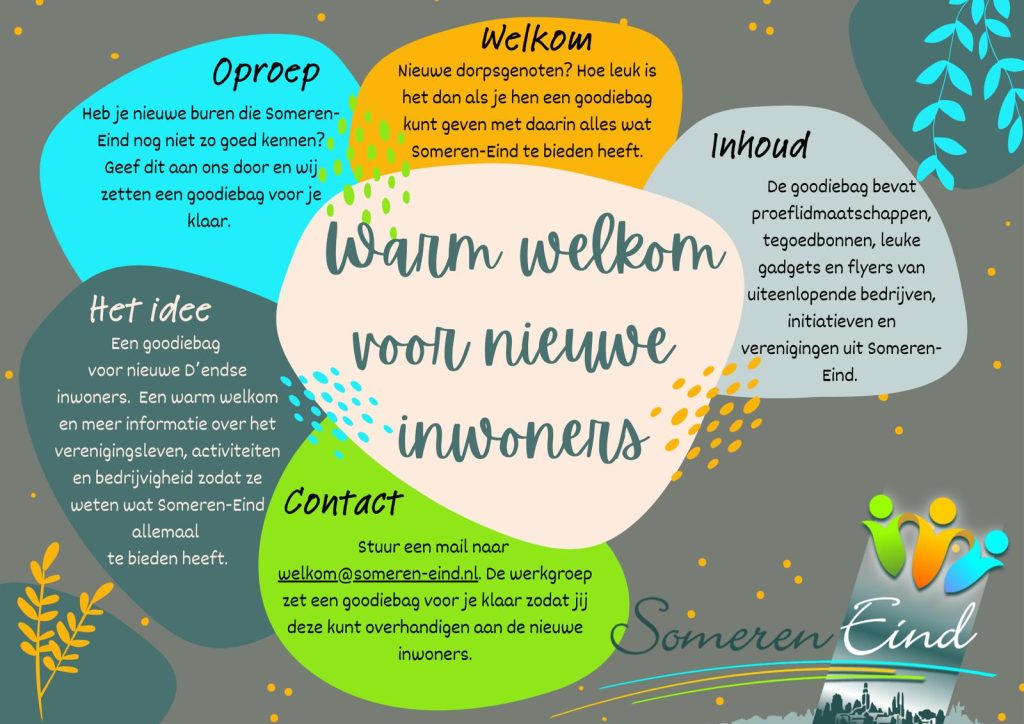 Welkom
Nieuwe dorpsgenoten? Hoe leuk is
het dan als je hen een goodiebag
kunt geven met daarin alles wat
Someren-Eind te bieden heeft.
Oproep
Heb je nieuwe buren die Someren-
Eind nog niet zo goed kennen?
Geef dit aan ons door en wij
zetten een goodiebag voor je
klaar.
Inhoud
De goodiebag bevat
proeflidmaatschappen,
tegoedbonnen, leuke
gadgets en flyers van
uiteenlopende bedrijven,
initiatieven en
verenigingen uit Someren-
Eind.
Warm welkom
voor nieuwe
inwoners
Het idee
Een goodiebag
voor nieuwe D'endse
inwoners. Een warm welkom
en meer informatie over het
verenigingsleven, activiteiten
en bedrijvigheid zodat ze
weten wat Someren-Eind
allemaal
te bieden heeft.
Contact
Stuur een mail naar
welkom@someren-eind.nl. De werkgroep
zet een goodiebag voor je klaar zodat jij
deze kunt overhandigen aan de nieuwe
inwoners.
Someren Eind